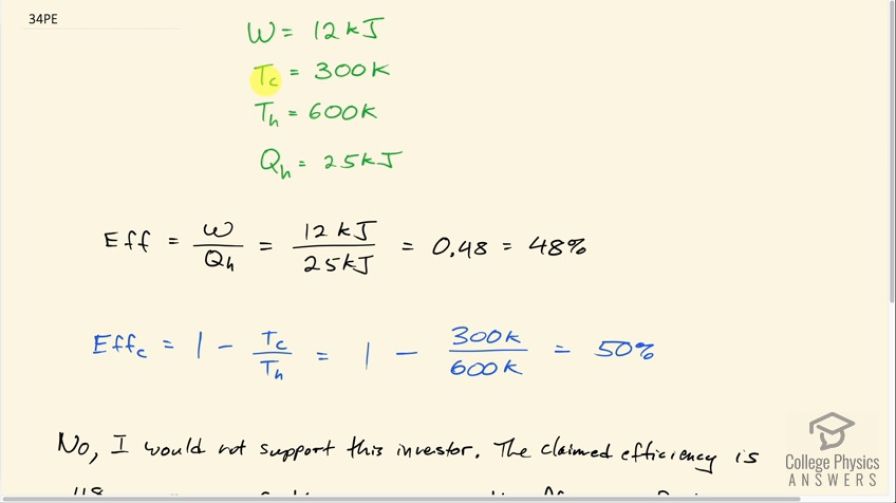 34PE
W = 12 kJ
Tc = 300K
Th = 600K
Qh = 25kJ
Eff = W/Qh = 12 kJ/25kJ = 0.48 = 48%
Effc = 1 - Tc/Th = 1 - 300K/600K = 50%
No, I would not support this investor. The claimed efficiency is
College Physics
ANSWERS